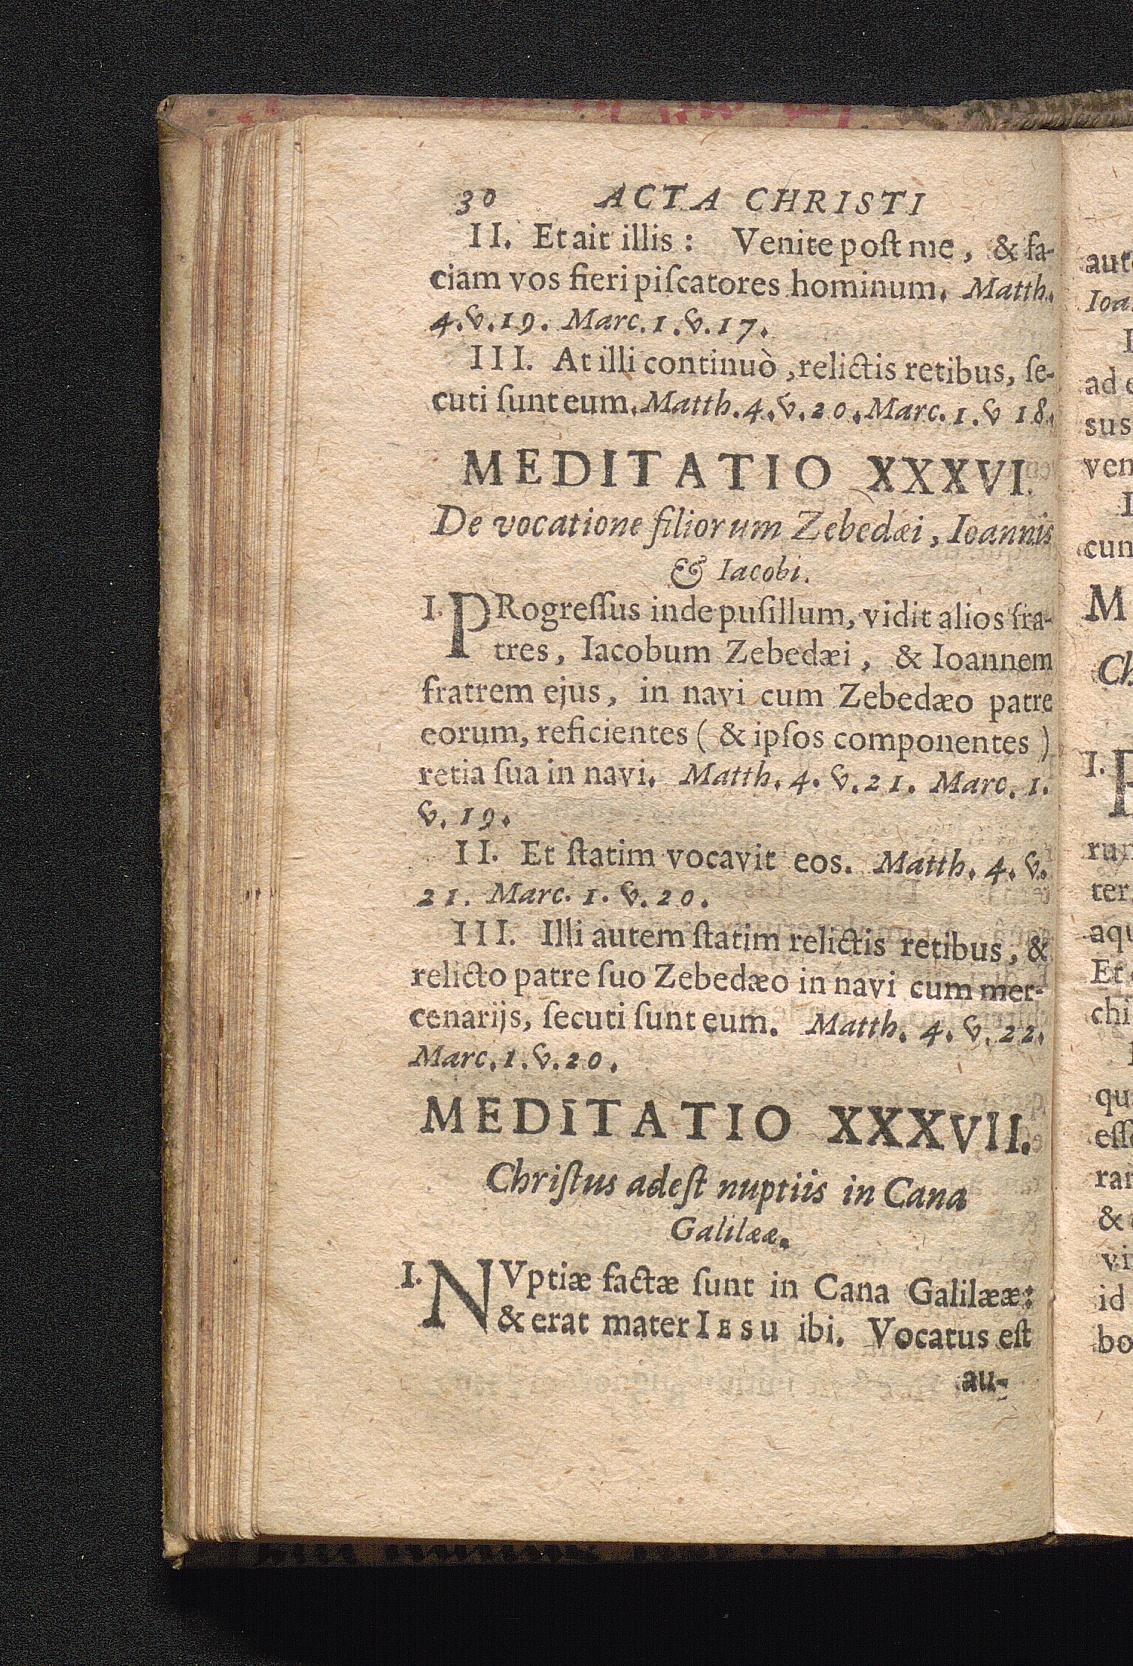 30 ACTA CHRISTI
II. Et ait illis : Venite poſt me, & fa-
ciam vos fieri piſcatores hominum. Matth.
4.v.19. Marc.1.v.17.
III. At illi continuò ,relictis retibus, ſe-
cuti ſunt eum.Matth.4.v.20.Marc.1.v 18.
MEDITATIO XXXVI.
De vocatione filiorum Zebedæi, Ioannis
& Iacobi.
I. PRogreſſus inde puſillum, vidit alios fra-
tres, Iacobum Zebedæi, & Ioannem
fratrem ejus, in navi cum Zebedæo patre
eorum, reficientes ( & ipſos componentes )
retia ſua in navi. Matth. 4. v.21. Marc. 1.
v. 19.
II. Et ſtatim vocavit eos. Matth. 4. v.
21. Marc. 1. v. 20.
III. Illi autem ſtatim relictis retibus, &
relicto patre ſuo Zebedæo in navi cum mer-
cenarijs, ſecuti ſunt eum. Matth. 4. v. 22.
Marc.1.v.20.
MEDITATIO XXXVII.
Chriſtus adeſt nuptiis in Cana
Galilææ.
I. NVptiæ factæ ſunt in Cana Galilææ:
& erat mater IESU ibi. Vocatus eſt
au-